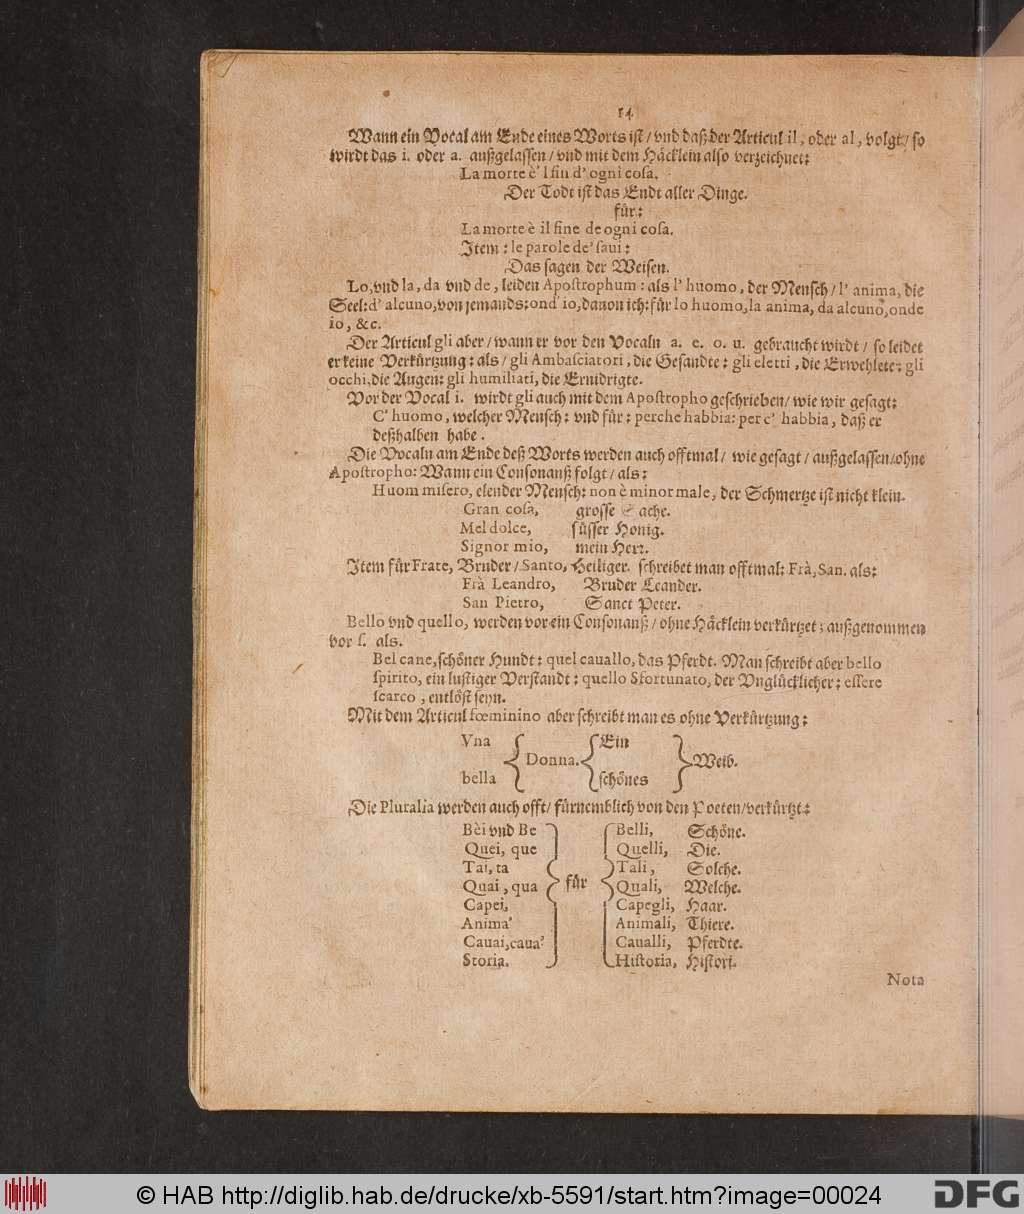 14
Wann ein Vocal am Ende eines Worts ist / vnd daß der Articul il, oder al, volgt / so
wirdt das i. oder a. außgelassen / vnd mit dem Häcklein also verzeichnet:
La morte è' l fin d' ogni cosa.
Der Todt ist das Endt aller Dinge.
für:
La morte è il fine de ogni cosa.
Item : le parole de' saui :
Das sagen der Weisen.
Lo, vnd la, da vnd de, leiden Apostrophum : als l' huomo, der Mensch / l' anima, die
Seel: d' alcuno, von jemands: ond' io, dauon ich: für lo huomo, la anima, da alcuno, onde
io, &c.
Der Articul gli aber / wann er vor den Vocaln a. e. o. u. gebraucht wirdt / so leidet
er keine Verkürtzung: als / gli Ambasciatori, die Gesandte: gli eletti, die Erwehlete: gli
occhi, die Augen: gli humiliati, die Ernidrigte.
Vor der Vocal i. wirdt gli auch mit dem Apostropho geschrieben / wie wir gesagt:
C' huomo, welcher Mensch: vnd für: perche habbia: per c' habbia, daß er
deßhalben habe.
Die Vocaln am Ende deß Worts werden auch offtmal / wie gesagt / außgelassen / ohne
Apostropho: Wann ein Consonanß folgt / als:
Huom misero, elender Mensch: non è minor male, der Schmertze ist nicht klein.
Gran cosa, grosse Sache.
Mel dolce, süsser Honig.
Signor mio, mein Herr.
Item für Frate, Bruder / Santo, Heiliger. schreibet man offtmal: Frà, San. als:
Frà Leandro, Bruder Leander.
San Pietro, Sanct Peter.
Bello vnd quello, werden vor ein Consonanß / ohne Häcklein verkürtzet; außgenommen
vor s. als.
Bel cane, schöner Hundt: quel cauallo, das Pferdt. Man schreibt aber bello
spirito, ein lustiger Verstandt: quello Sfortunato, der Vnglücklicher: essere
scarco, entlöst seyn.
Mit dem Articul fœminino aber schreibt man es ohne Verkürtzung:
Vna Ein
Donna. Weib.
bella schönes
Die Pluralia werden auch offt / fürnemblich von den Poeten / verkürtzt:
Bèi vnd Be Belli, Schöne.
Quei, que Quelli, Die.
Tai, ta Tali, Solche.
Quai, qua für Quali, Welche.
Capei, Capegli, Haar.
Anima' Animali, Thiere.
Cauai, caua' Caualli, Pferdte.
Storia. Historia, Histori.
Nota
© HAB http://diglib.hab.de/drucke/xb-5591/start.htm?image=00024
DFG